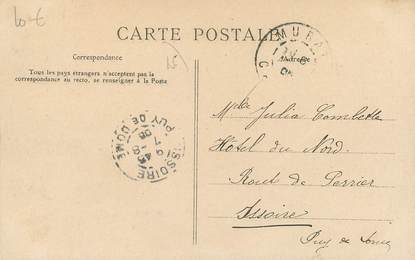 10-€
CARTE POSTALE
Correspondance
Tous les pays étrangers n'acceptent pas la
correspondance au recto, se renseigner à la Poste
15
MURAT
Adresse
ISSOIRE
PUY-DE-DOME
Mlle Julia Combette
Hôtel du Nord.
Route de Perrier
Issoire
Puy de Dome